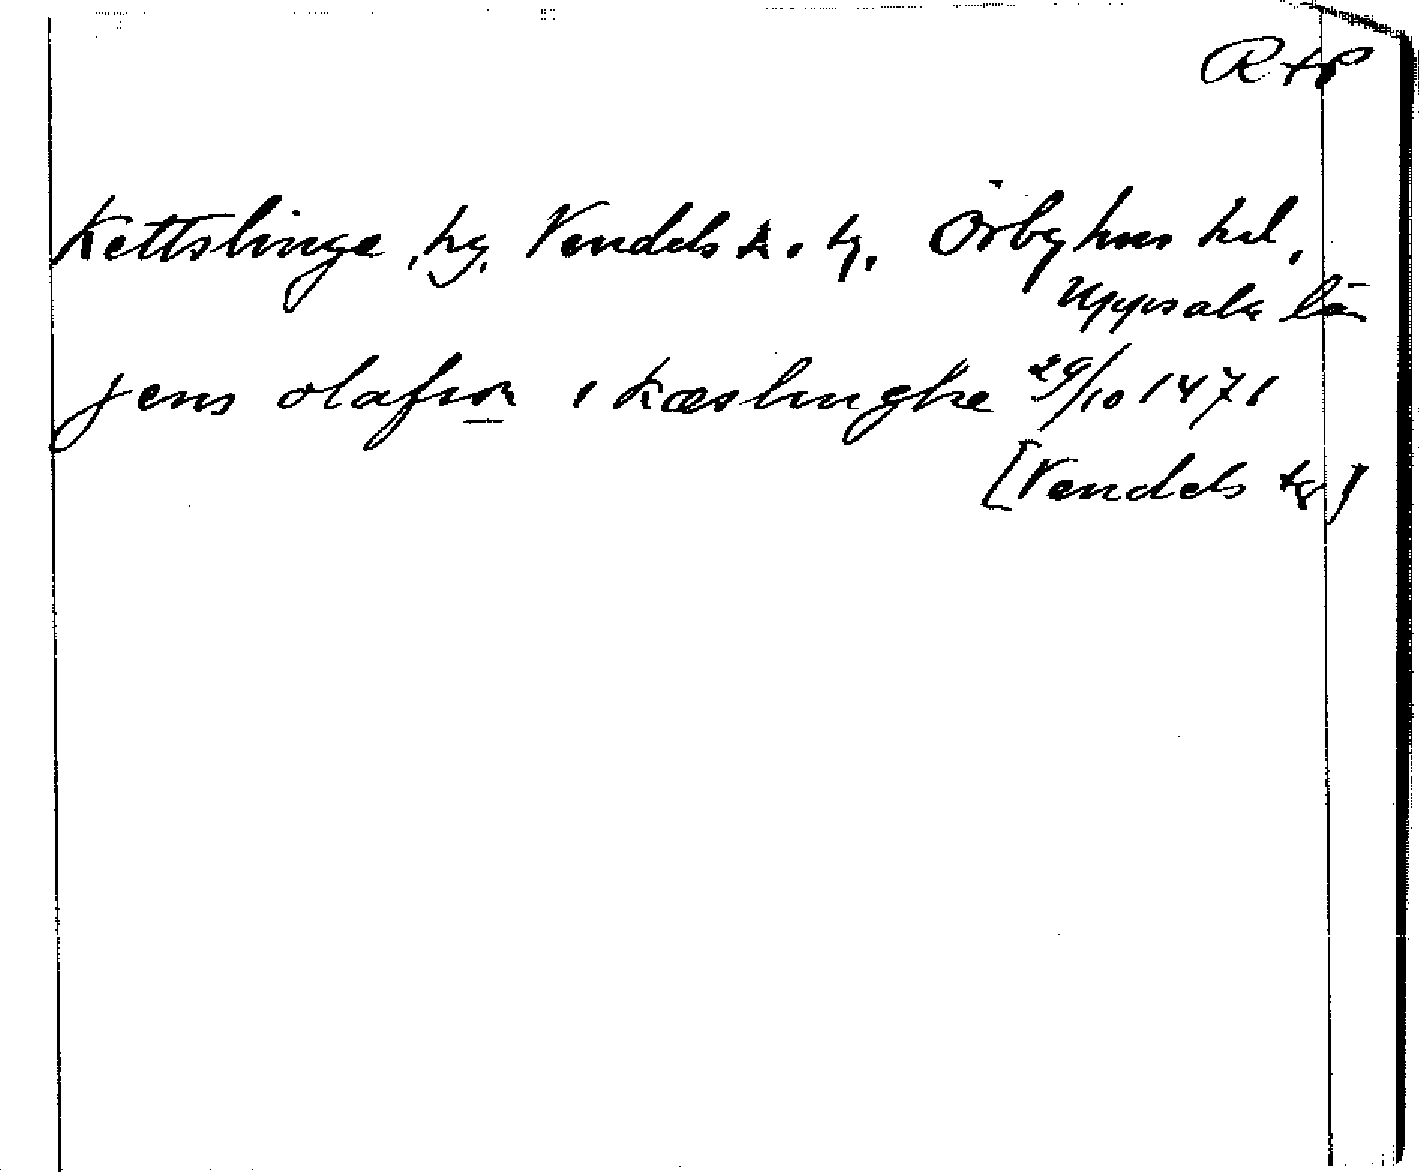 RAP
Kettslinge, by, Vendels s. o. hd., Örbyhus hd,
Uppsala län
jens olafson i kæslinghe 29/10 1471
[Vendels ky]